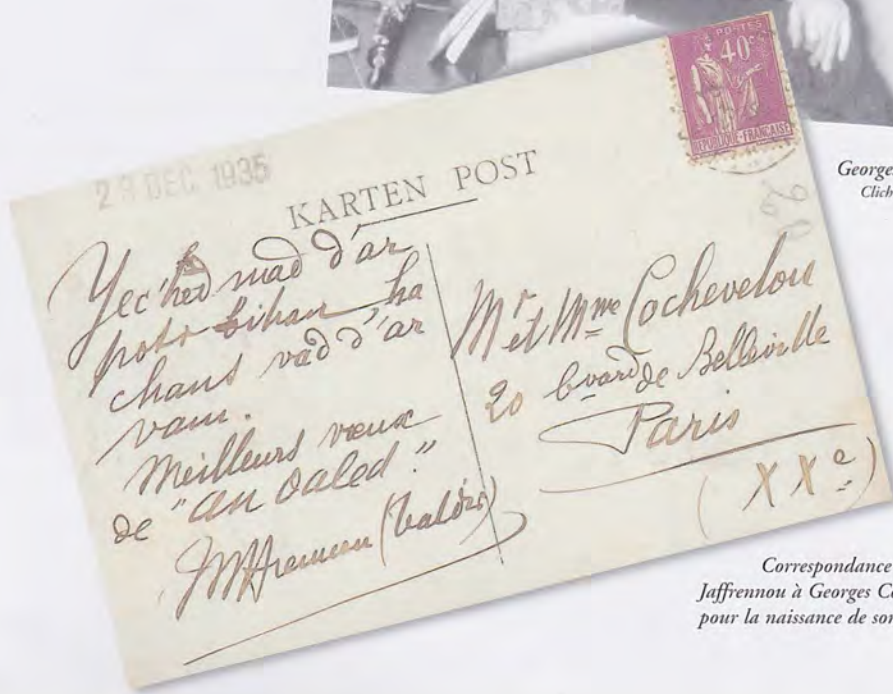 PORTES
40c
REPUBLIQUE-FRANCAISE
Georges
Clich
23 DEC 1935
KARTEN POST
Yec'hed mad d'ar
potr bihan ha
chans vad d'ar
vam.
Meilleurs vœux
de "An Oaled"
(Taldir)
Mr et Mme Cochevelou
20 bvard de Belleville
Paris
(XXe)
Correspondance
Jaffrennou à Georges Co
pour la naissance de son